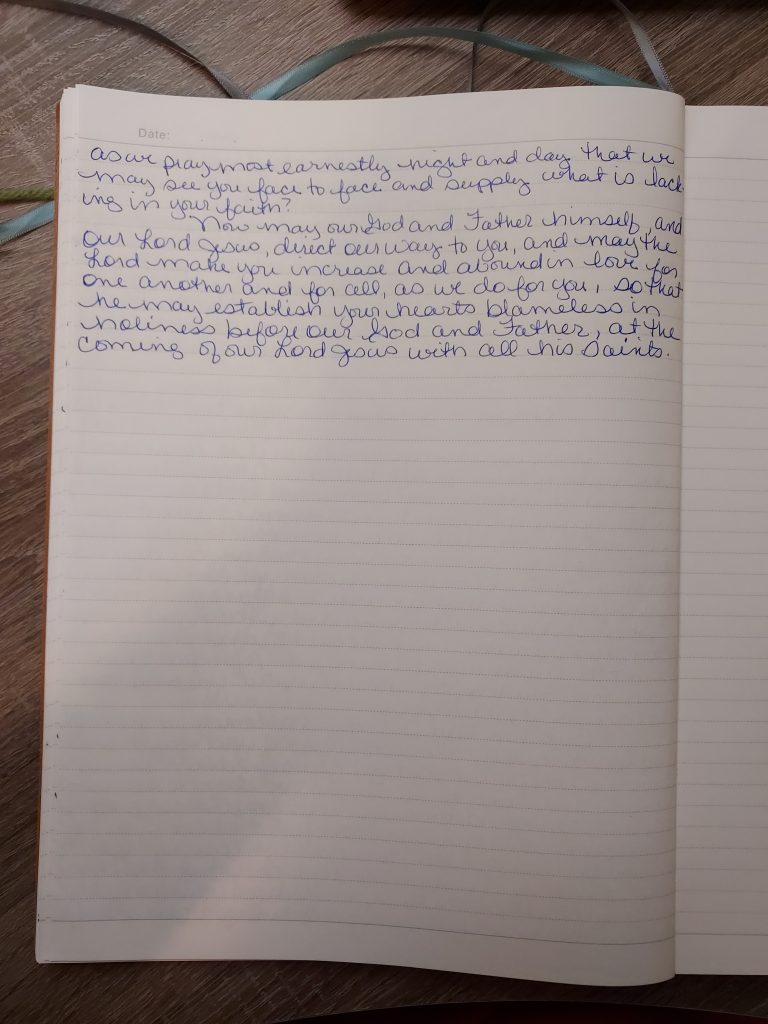 Date:
as we pray most earnestly night and day that we
may see you face to face and supply what is lack
ing in your faith?
Now may our God and Father himself, and
our Lord Jesus, direct our way to you, and may the
Lord make you increase and abound in love for
one another and for all, as we do for you, so that
he may establish your hearts blameless in
holiness before our God and Father, at the
coming of our Lord Jesus with all his saints.